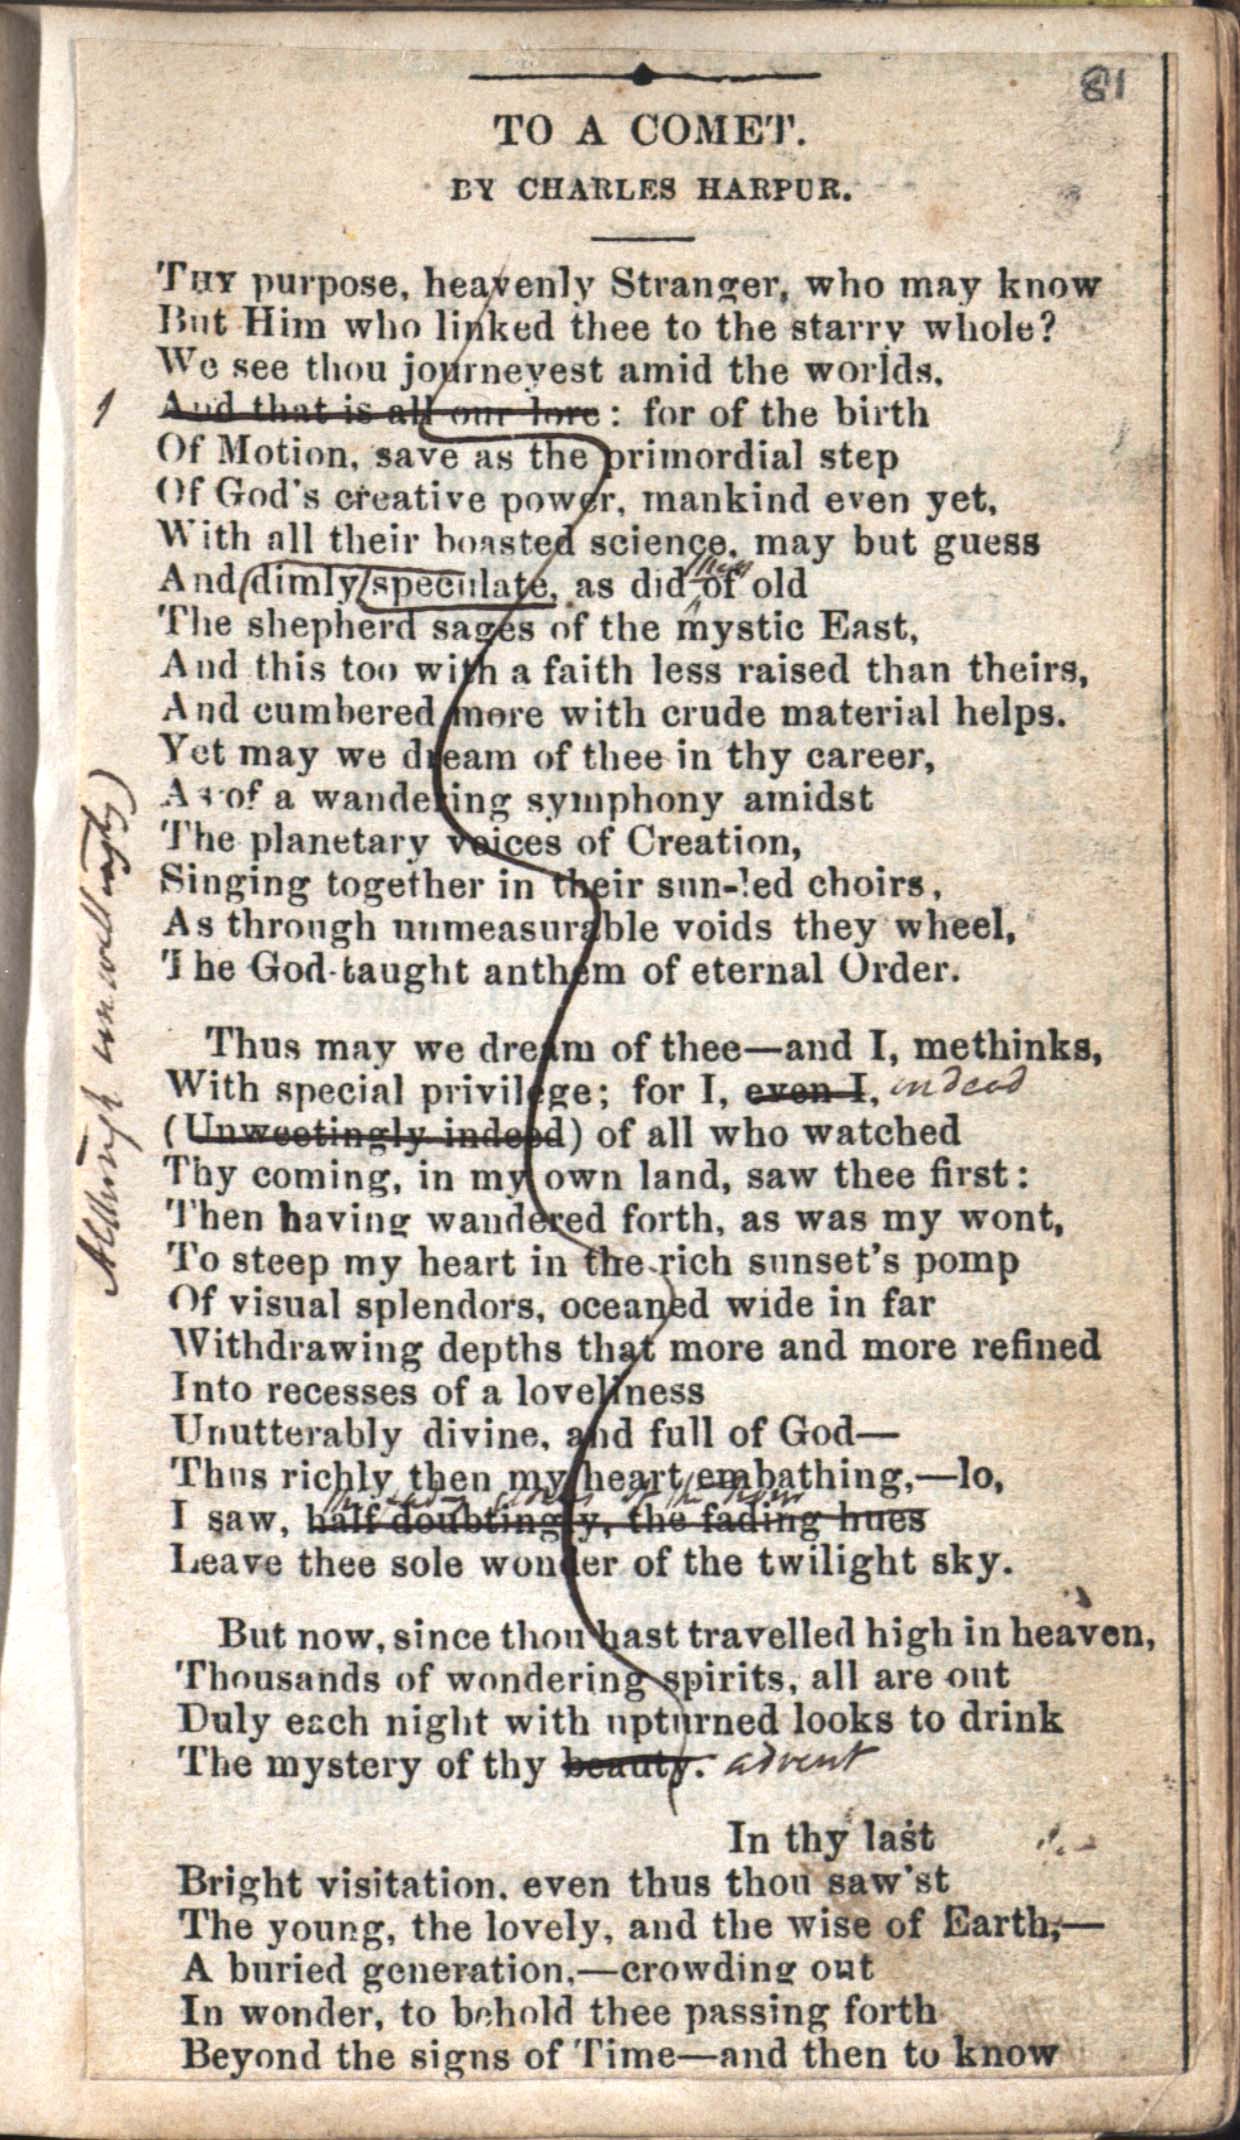 81
TO A COMET.
BY CHARLES HARPUR.
THY purpose, heavenly Stranger, who may know
But Him who linked thee to the starry whole?
We see thou journeyest amid the worlds,
And that is all our lore: for of the birth
Of Motion, save as the primordial step
Of God's creative power, mankind even yet,
With all their boasted science, may but guess
And dimly speculate, as did of old
The shepherd sages of the mystic East,
And this too with a faith less raised than theirs,
And cumbered more with crude material helps.
Yet may we dream of thee in thy career,
As of a wandering symphony amidst
The planetary voices of Creation,
Singing together in their sun-led choirs,
As through unmeasurable voids they wheel,
The God-taught anthem of eternal Order.
Thus may we dream of thee—and I, methinks,
With special privilege; for I, even I, indeed
(Unweetingly indeed) of all who watched
Although unwittingly)
Thy coming, in my own land, saw thee first:
Then having wandered forth, as was my wont,
To steep my heart in the rich sunset's pomp
Of visual splendors, oceaned wide in far
Withdrawing depths that more and more refined
Into recesses of a loveliness
Unutterably divine, and full of God—
Thus richly then my heart embathing,—lo,
I saw, half doubtingly, the fading hues
Leave thee sole wonder of the twilight sky.
But now, since thou hast travelled high in heaven,
Thousands of wondering spirits, all are out
Duly each night with upturned looks to drink
The mystery of thy beauty. advent
In thy last
Bright visitation, even thus thou saw'st
The young, the lovely, and the wise of Earth,—
A buried generation,—crowding out
In wonder, to behold thee passing forth
Beyond the signs of Time—and then to know